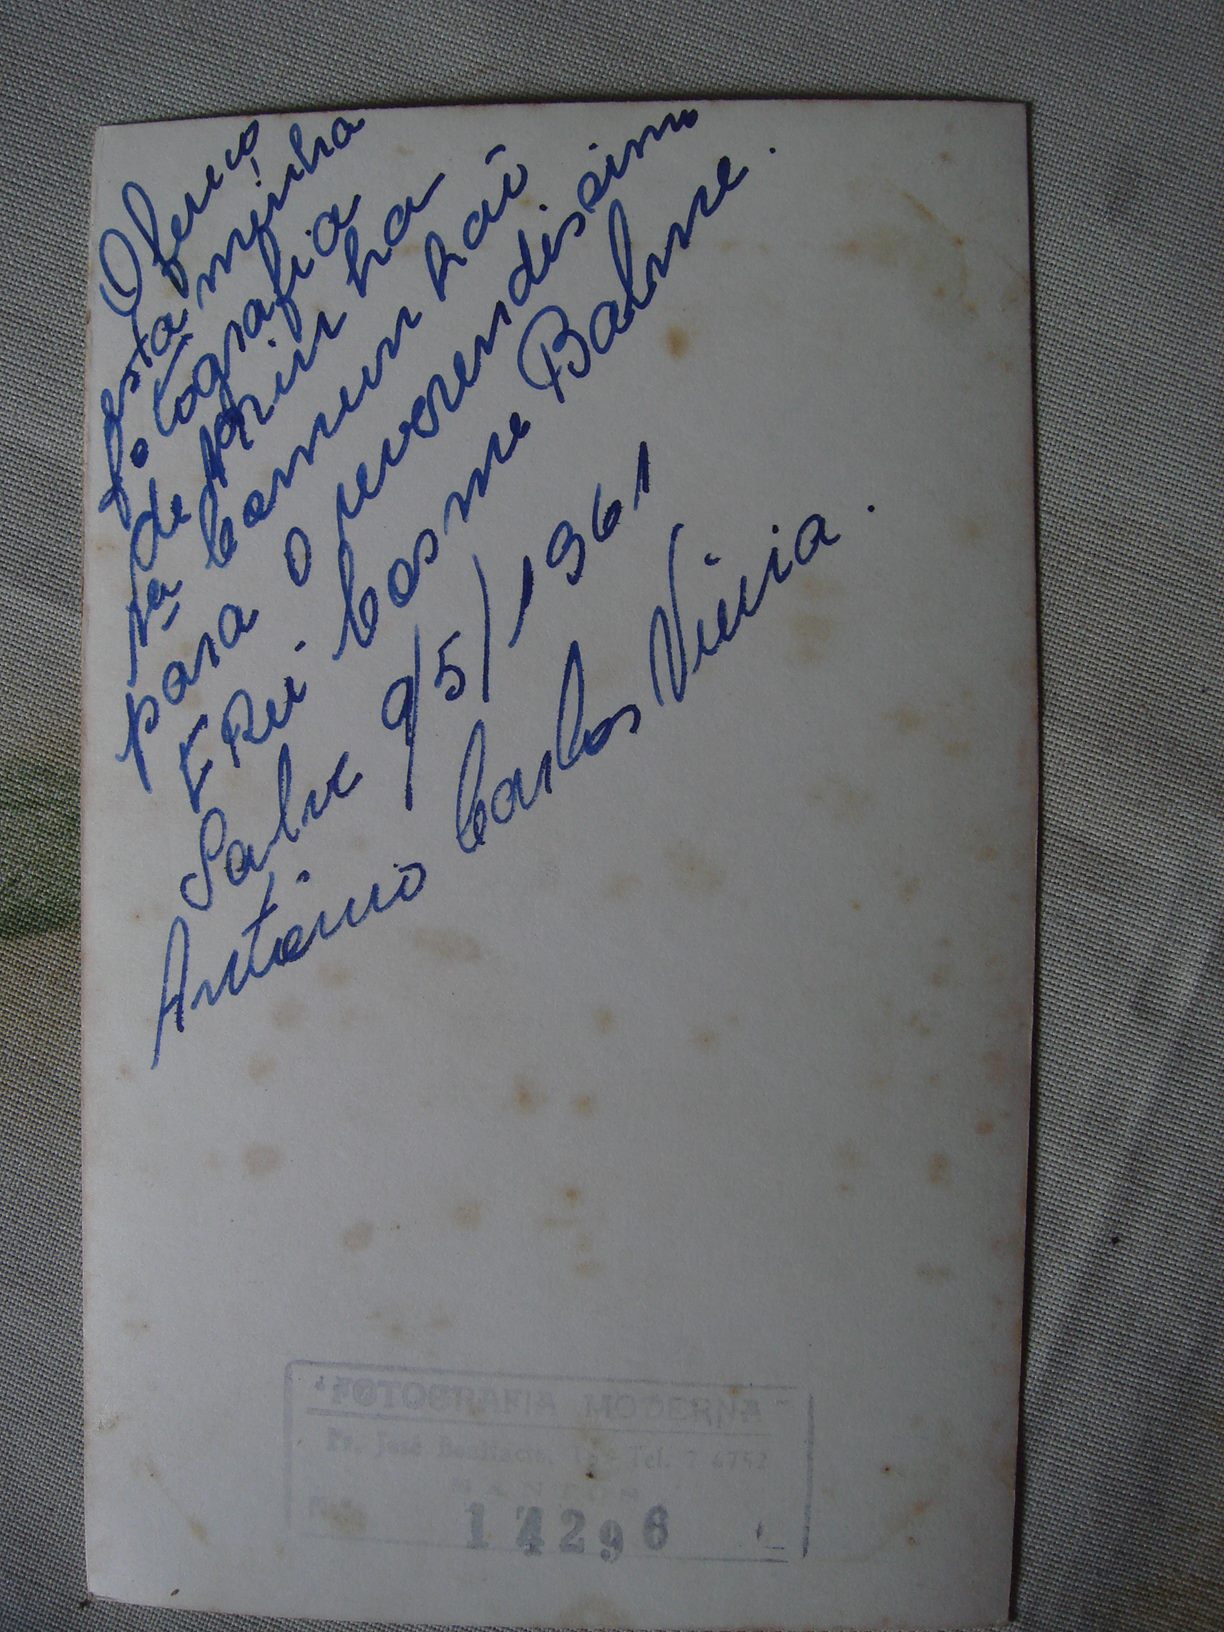 Ofereço
esta minha
fotografia
de minha
1ª Comunhão
para o reverendissimo
FRei Cosme Balme.
Salve 9/5/1961
Antônio Carlos Vieira.
"FOTOGRAFIA MODERNA"
Pr. José Bonifacio, Tel. 2-6752
SANTOS
N.
17296